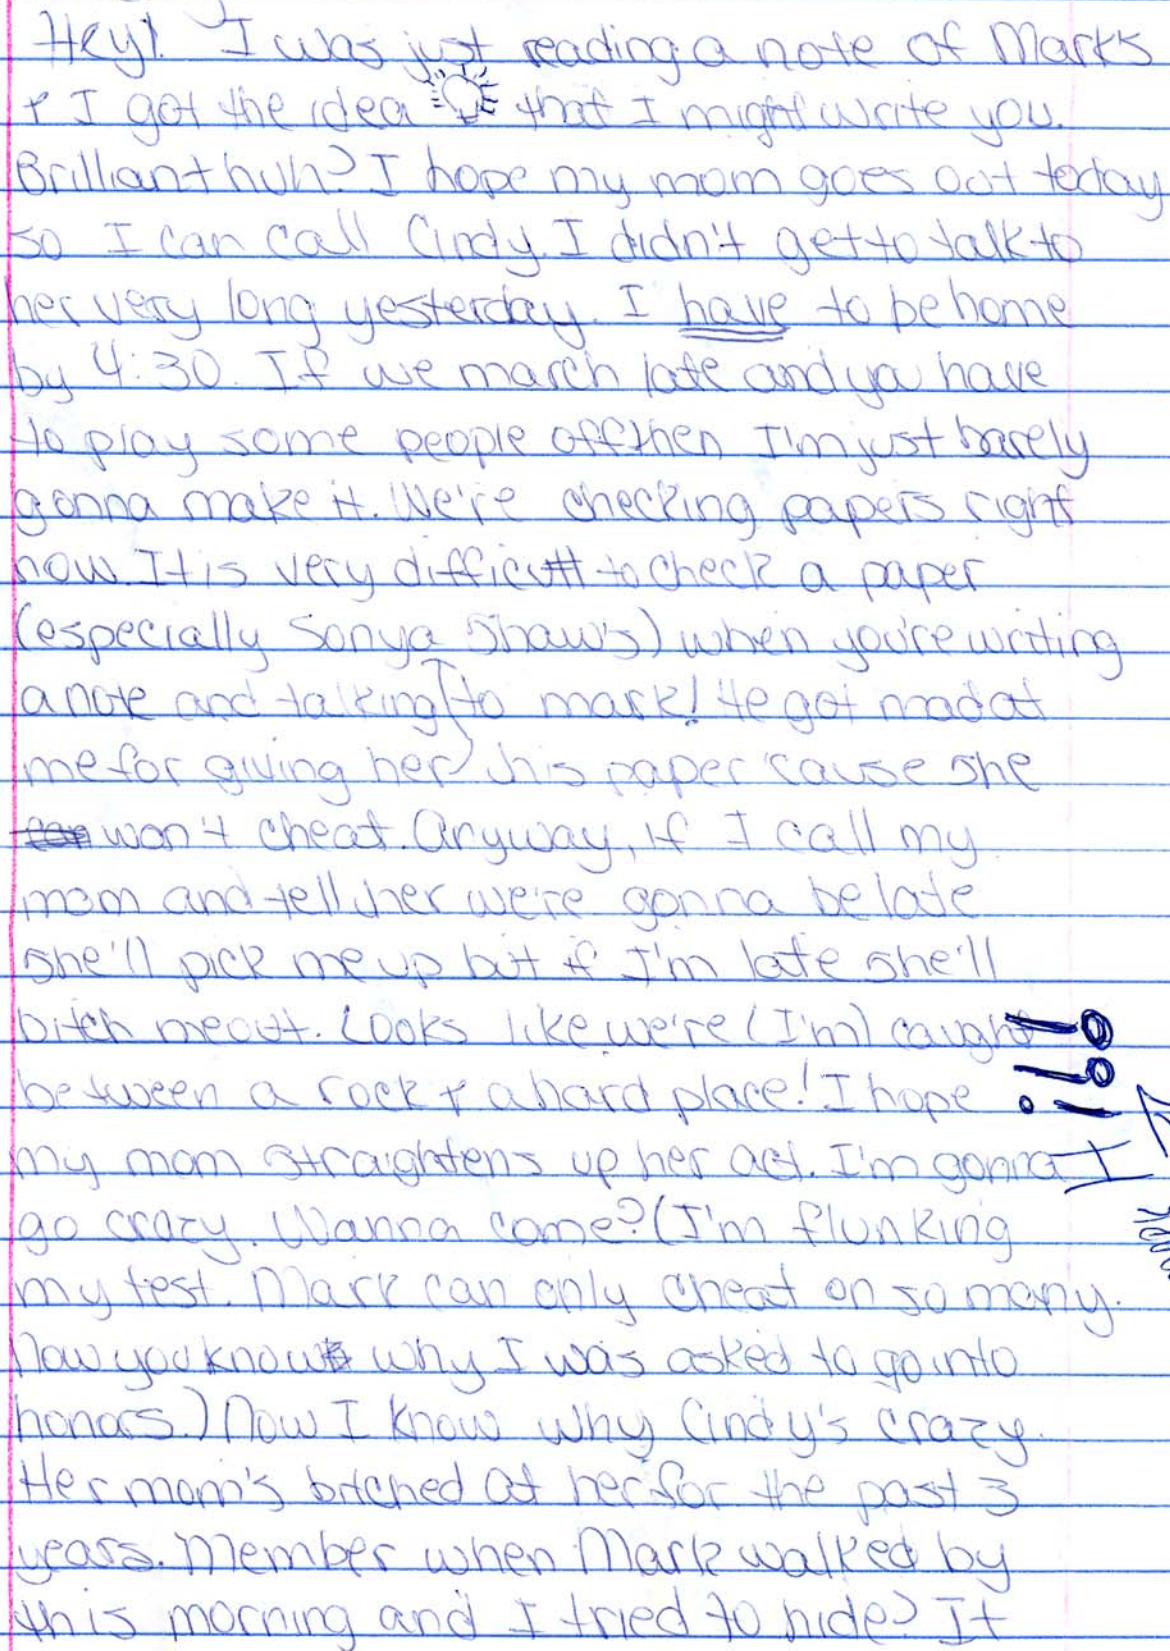 Hey! I was just reading a note of Marks
+ I got the idea that I might write you.
Brilliant huh? I hope my mom goes out today
so I can call Cindy. I didn't get to talk to
her very long yesterday. I have to be home
by 4:30. If we march late and ya have
to play some people off then I'm just barely
gonna make it. We're checking papers right
now. It is very difficult to check a paper
(especially Sonya Shaw's) when you're writing
a note and talking to mark! He got mad at
me for giving her his paper cause she
won't cheat. Anyway, if I call my
mom and tell her we're gonna be late
she'll pick me up but if I'm late she'll
bitch me out. Looks like we're (I'm) caught
between a rock + a hard place! I hope
my mom straightens up her act. I'm gonna
go crazy. Wanna come? (I'm flunking
my test. Mark can only cheat on so many.
Now you know why I was asked to go into
honors.) Now I know why Cindy's crazy.
Her mom's bitched at her for the past 3
years. Member when Mark walked by
this morning and I tried to hide? It